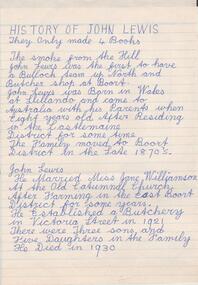 HISTORY OF JOHN LEWIS
They Only made 4 Books
The smoke from the Hill
John Lewis was the first to have
a Bulloch team up North and
Butcher shop at Boort.
John Lewis was Born in Wales
at Llilando and came to
Australia with his Parents when
Eight years old After Residing
in the Castlemaine
District for some time
The Family moved to Boort
District in the Late 1870s.
John Lewis
He Married Miss Jane Williamson
At the Old Calumnal Church
After Farming in the East Boort
District for some years.
He Established a Butchery
in Victoria Street in 1921
There were Three sons, and
Five Daughters in the Family
He Died in 1930